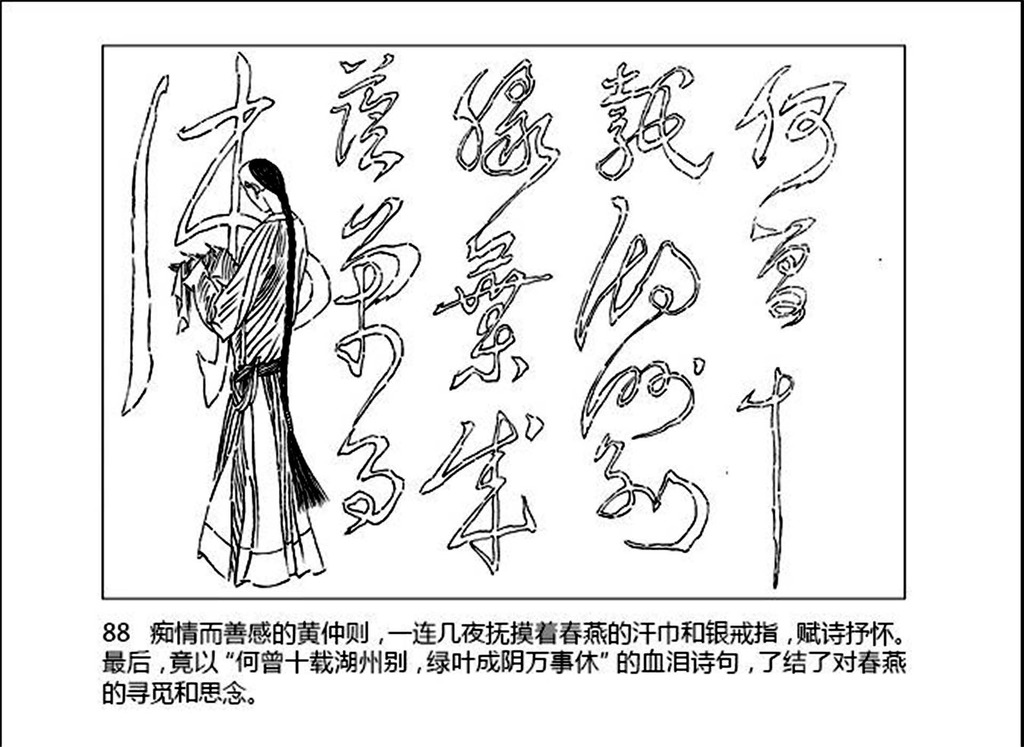 何曾十
載湖州別
綠葉成
蔭萬事
休
88 痴情而善感的黄仲则，一连几夜抚摸着春燕的汗巾和银戒指，赋诗抒怀。
最后，竟以“何曾十载湖州别，绿叶成阴万事休”的血泪诗句，了结了对春燕
的寻觅和思念。